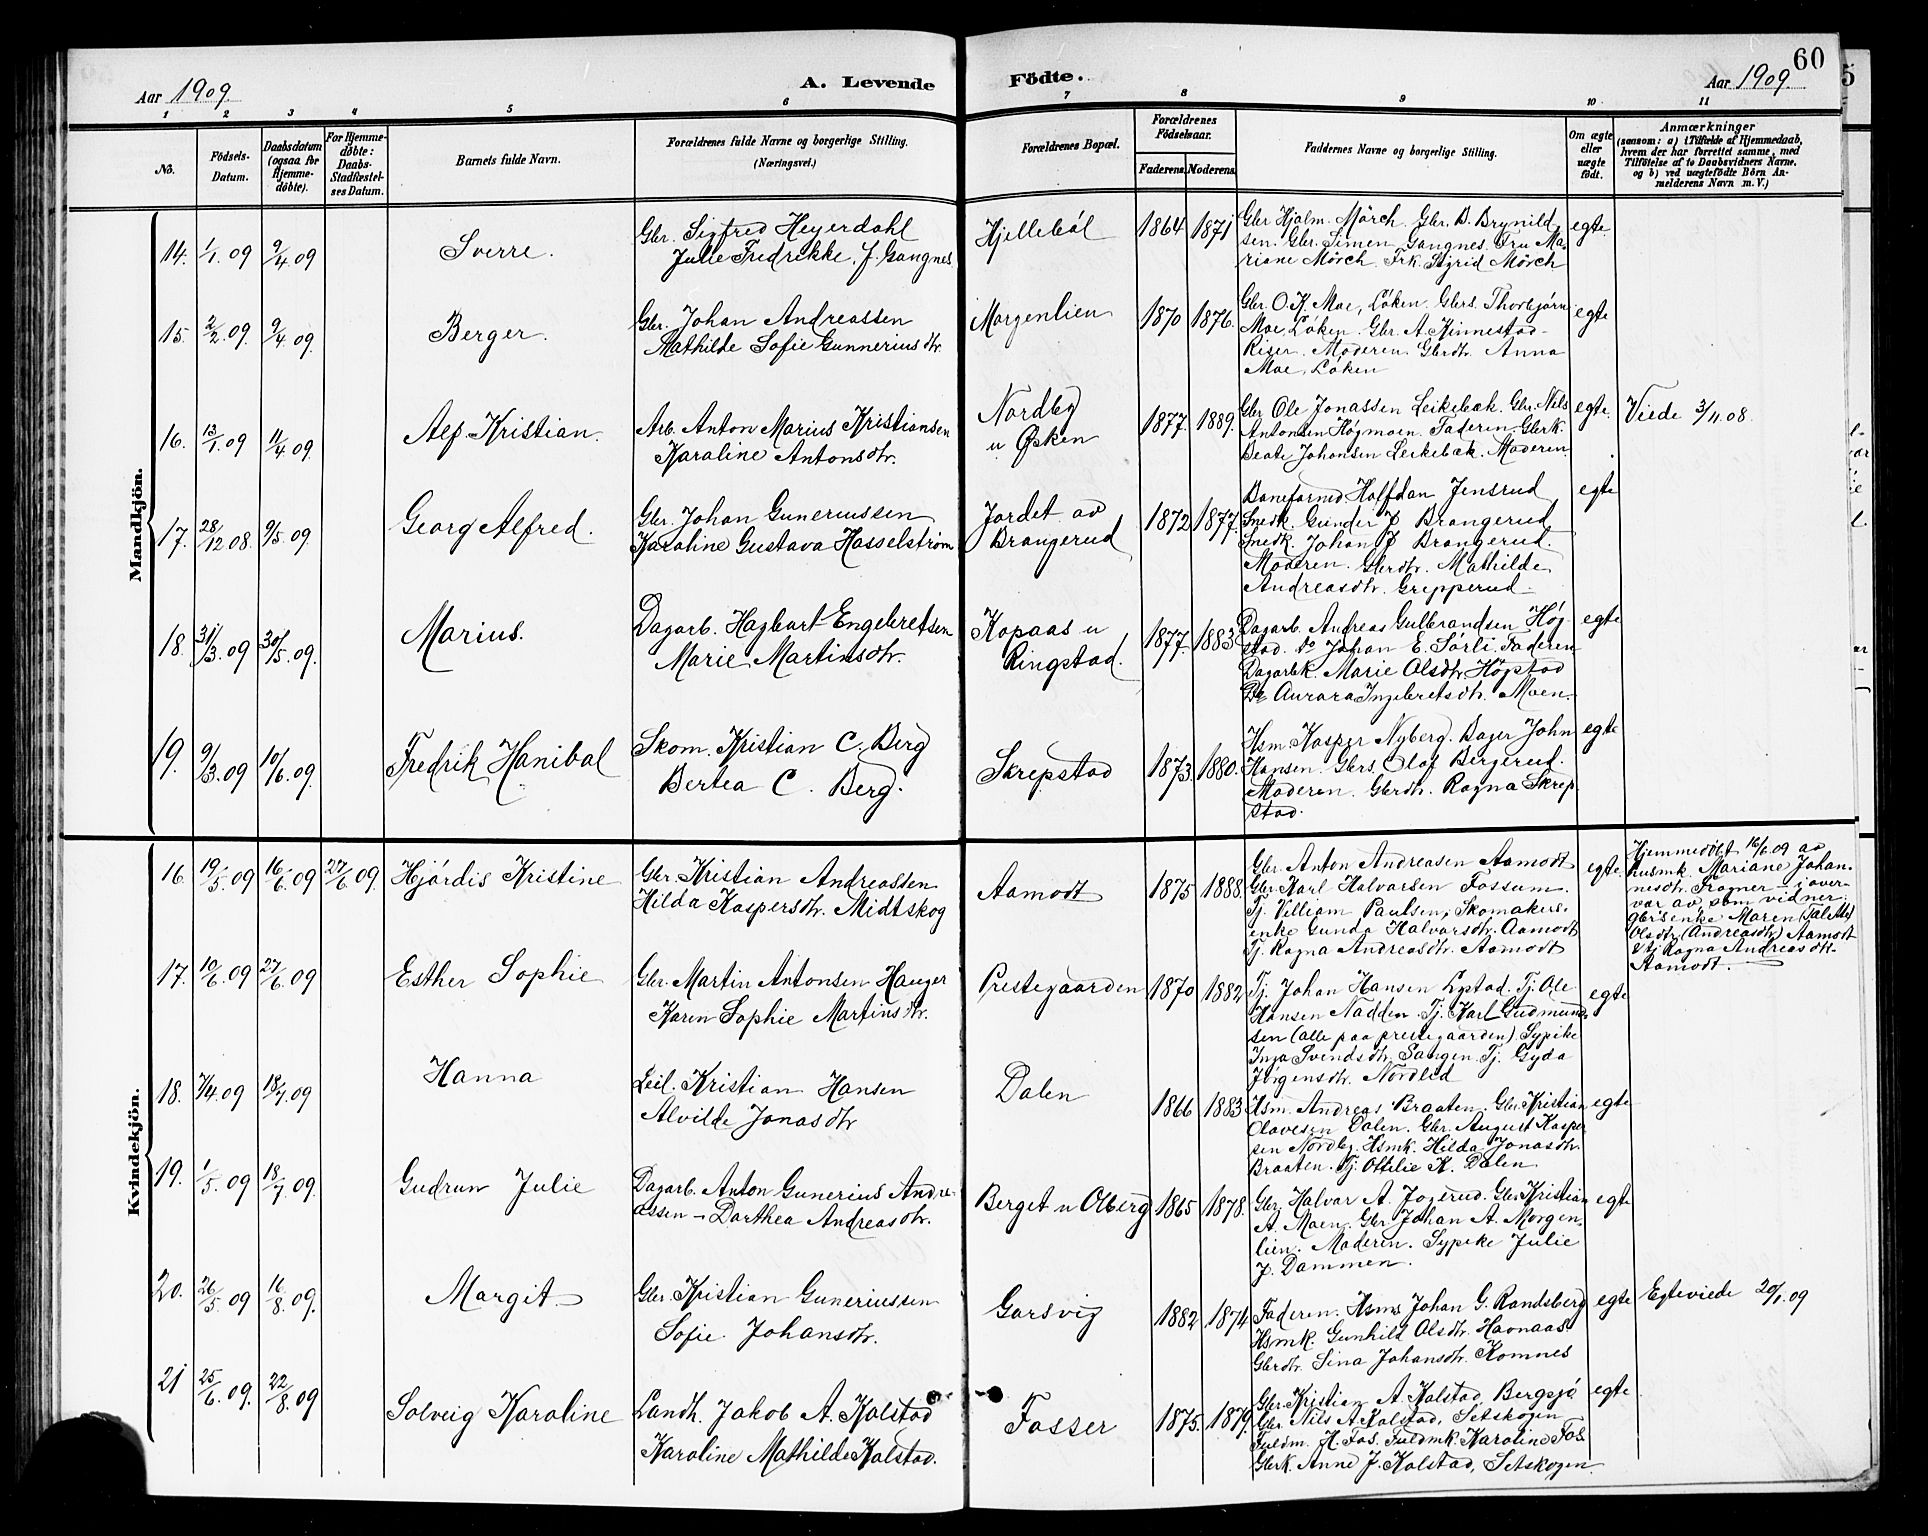 60
Aar 1909.
A. Levende Födte.
Aar 1909.
1 2 3 4 5 6 7 8 9 10 11
No.
Födsels-
Datum.
Daabsdatum
(ogsaa for
Hjemme-
döbte).
For Hjemme-
döbte:
Daabs-
Stadfæstel-
ses Datum.
Barnets fulde Navn.
Forældrenes fulde Navne og borgerlige Stilling.
(Næringsvei.)
Forældrenes Bopæl.
Forældrenes
Födselsaar.
Faderens. Moderens.
Faddernes Navne og borgerlige Stilling.
Om ægte
eller
uægte
födt.
Anmærkninger
(saasom: a) i Tilfælde af Hjemmedaab,
hvem der har forrettet samme, med
Tilföielse af to Daabsvidners Navne,
og b) ved uægtefödte Börn An-
melderens Navn m. V.)
Mandkjön.
14. 1/1.09 9/4.09 Sverre.
Gbr. Sigfred Heyerdahl
Julie Fredrikke, f. Gangnes.
Hjelleböl 1864 1871
Gbr Hjalm. Mörch. Gbr. B. Brynild
sen. Gbr. Simen Gangnes. Fru Ma-
riane Mörch. Frk. Sigrid Mörch
egte.
15. 2/2.09. 9/4.09. Berger.
Gbr. Johan Andreassen
Mathilde Sofie Gunnerius dtr.
Morgenlien 1870 1876.
Gbr O.K. Moe, Löken. Gbrs. Thorbjörn
Moe, Löken. Gbr. A. Kinnestad-
Riser. Moderen. Gbrdtr. Anna
Moe, Löken
egte
16. 13/1.09 11/4.09 Alf Kristian.
Arb. Anton Marius Kristiansen
Karaline Antonsdtr.
Nordby
u Øsken
1877. 1889.
Gbr Ole Jonassen Leikebæk. Gbr. Nils
Antonsen Högmoen. Faderen. Gbrk.
Beate Johansen Leikebæk. Moderen.
egte. Viede 3/11.08.
17. 28/12 08. 9/5.09 Georg Alfred.
Gbr. Johan Guneriussen
Karoline Gustava Hasselström
Jordet av
Brangerud
1872 1877.
Baneformd. Halfdan Jensrud
Snedk. Gunder J. Brangerud
Snedk. Johan J. Brangerud.
Moderen. Gbrdtr. Mathilde
Andreasdtr. Grepperud
egte
18. 31/3.09 30/5.09. Marius.
Dagarb. Hagbart Engebretsen
Marie Martinsdtr.
Kopaas u
Ringstad.
1877. 1883
Dagarb. Andreas Gulbrandsen Hög-
stad. do Johan E. Sörli. Faderen
Dagarbk. Marie Olsdtr Högstad
Do Aurora Ingebretsdtr. Moen.
egte
19. 9/3.09 10/6.09. Fredrik Hanibal
Skom. Kristian C. Berg
Bertea C. Berg.
Skrepstad 1873. 1880.
Hsm. Kasper Nyberg. Bager John
Hansen. Gbrs. Olaf Bergerud.
Moderen. Gbrdtr. Ragna Skrep-
stad.
egte
Kvindekjön.
16. 19/5.09 16/6.09 27/6.09. Hjördis Kristine
Gbr. Kristian Andreassen
Hilda Kaspersdtr. Midtskog
Aamodt 1875 1888.
Gbr. Anton Andreasen Aamodt
Gbr. Karl Halvarsen Fossum.
Tj. Villiam Paulsen, Skomakers-
enke Gunda Halvarsdtr. Aamodt
Tj. Ragna Andreasdtr. Aamodt
egte.
Hjemmedöbt 16/6.09 av
husmk. Mariane Johan-
nesdtr. Fragner – i over-
vær av, som vidner:
gbrsenke Maren
Olsdtr. (Andreasdtr) Aamodt
& tj. Ragna Andreasdtr.
Aamodt.
17. 10/6.09 27/6.09 Esther Sophie
Gbr. Martin Antonsen Hauger
Karen Sophie Martinsdtr.
Prestegaarden 1870 1882
Tj. Johan Hansen Lystad. Tj. Ole
Hansen Nadden. Tj. Karl Gudmund-
sen (alle paa prestegaarden). Sypike
Inga Svendsdtr. Sangen. Tj. Gyda
Jörgensdtr. Nordlid
egte
18. 7/4.09 18/7.09 Hanna
Leil. Kristian Hansen
Alvilde Jonasdtr
Dalen 1866 1883
Hsm. Andreas Braaten. Gbr. Kristian
Olavesen Dalen. Gbr. August Kasper-
sen Nordby. Hsmk. Hilda Jonasdtr.
Braaten. Tj. Ottilie K. Dalen
egte
19. 1/5.09 18/7.09. Gudrun Julie
Dagarb. Anton Gunerius Andre-
assen – Dorthea Andreasdtr.
Berget u Olberg 1865 1878.
Gbr. Halvar A. Jogerud. Gbr. Kristian
A. Moen. Gbr. Johan A. Morgen-
lien. Moderen. Sypike Julie
J. Dammen.
egte
20. 26/5 09 16/8.09. Margit
Gbr. Kristian Guneriussen
Sofie Johansdtr.
Garsvig 1882 1874
Faderen. Hsms Johan G. Randsberg
Hsmk. Gunhild Olsdtr. Haonaas
Gbrdtr. Sina Johansdtr. Komnes
egte Egteviede 20/1.09
21 25/6.09. 22/8.09 Solveig Karoline
Landh. Jakob A. Kolstad
Karoline Mathilde Kolstad.
Fosser 1875. 1879.
Gbr. Kristian A. Kolstad, Bergsjö
Gbr. Nils A. Kolstad, Setskogen
Fuldm. H. Fos. Fuldmk. Karoline Fos.
Gbrk. Anne J. Kolstad, Setskogen.
egte